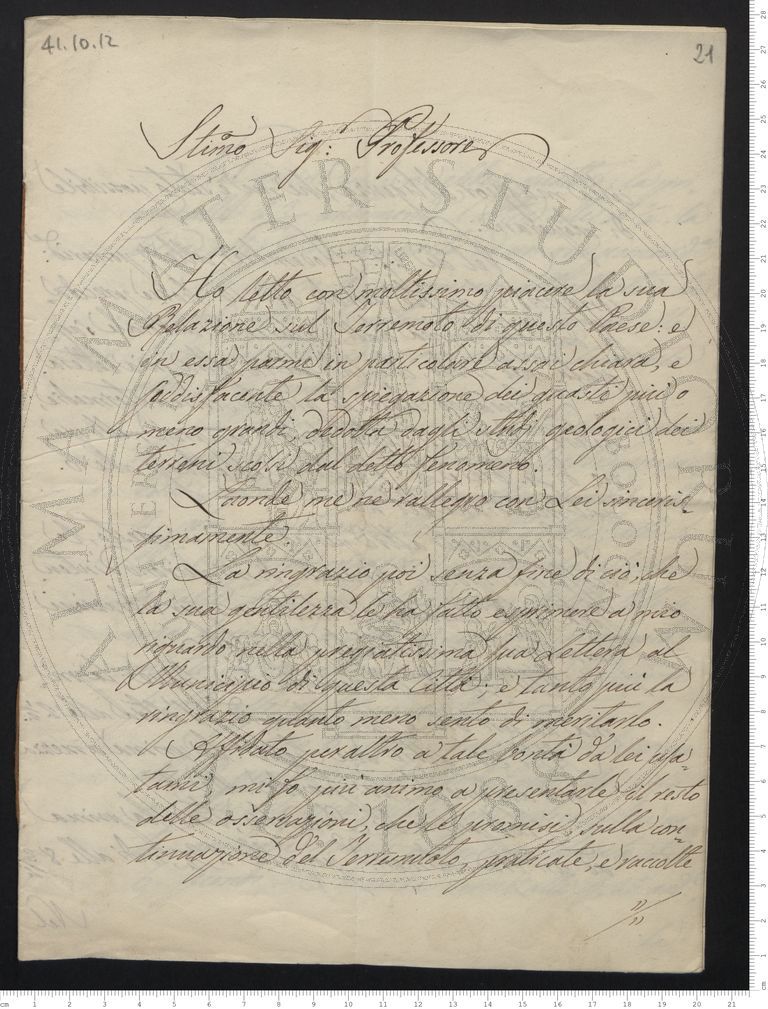 41.10.12
21
Stimo Sig: Professore
Ho letto con moltissimo piacere la sua
Relazione sul Terremoto di questo Paese: e
in essa parmi in particolare assai chiara, e
soddisfacente la spiegazione dei guasti più o
meno grandi, dedotta dagli studj geologici dei
terreni scossi dal detto fenomeno.
Laonde me ne rallegro con Lei sinceris-
simamente.
La ringrazio poi senza fine di ciò, che
la sua gentilezza le ha fatto esprimere a mio
riguardo nella pregiatissima sua Lettera al
Municipio di questa Città: e tanto più la
ringrazio quanto meno sento di meritarlo.
Affidato peraltro a tale bontà da lei usa-
tami, mi fo più animo a presentarle il resto
delle osservazioni, che le promisi, sulla con-
tinuazione del Terremoto, praticate, e raccolte
ALMA MATER STUDIORUM